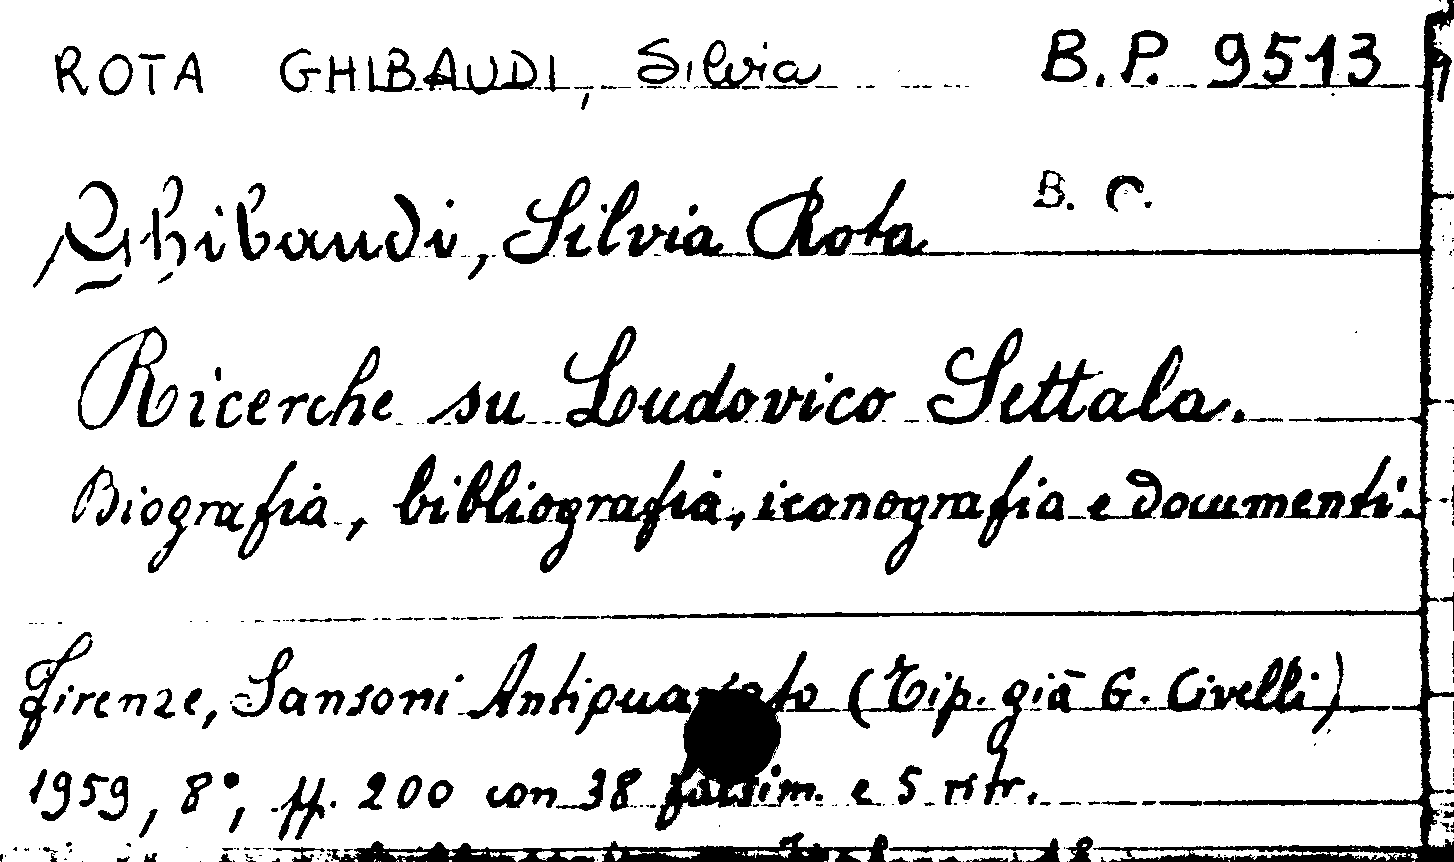 ROTA GHIBAUDI, Silvia B.P. 9513
Ghibaudi, Silvia Rota B. C.
Ricerche su Ludovico Settala.
Biografia, bibliografia, iconografia e documenti.
Firenze, Sansoni Antiquariato (Tip. già G. Civelli)
1959, 8°, pp. 200 con 38 facsim. e 5 ritr.